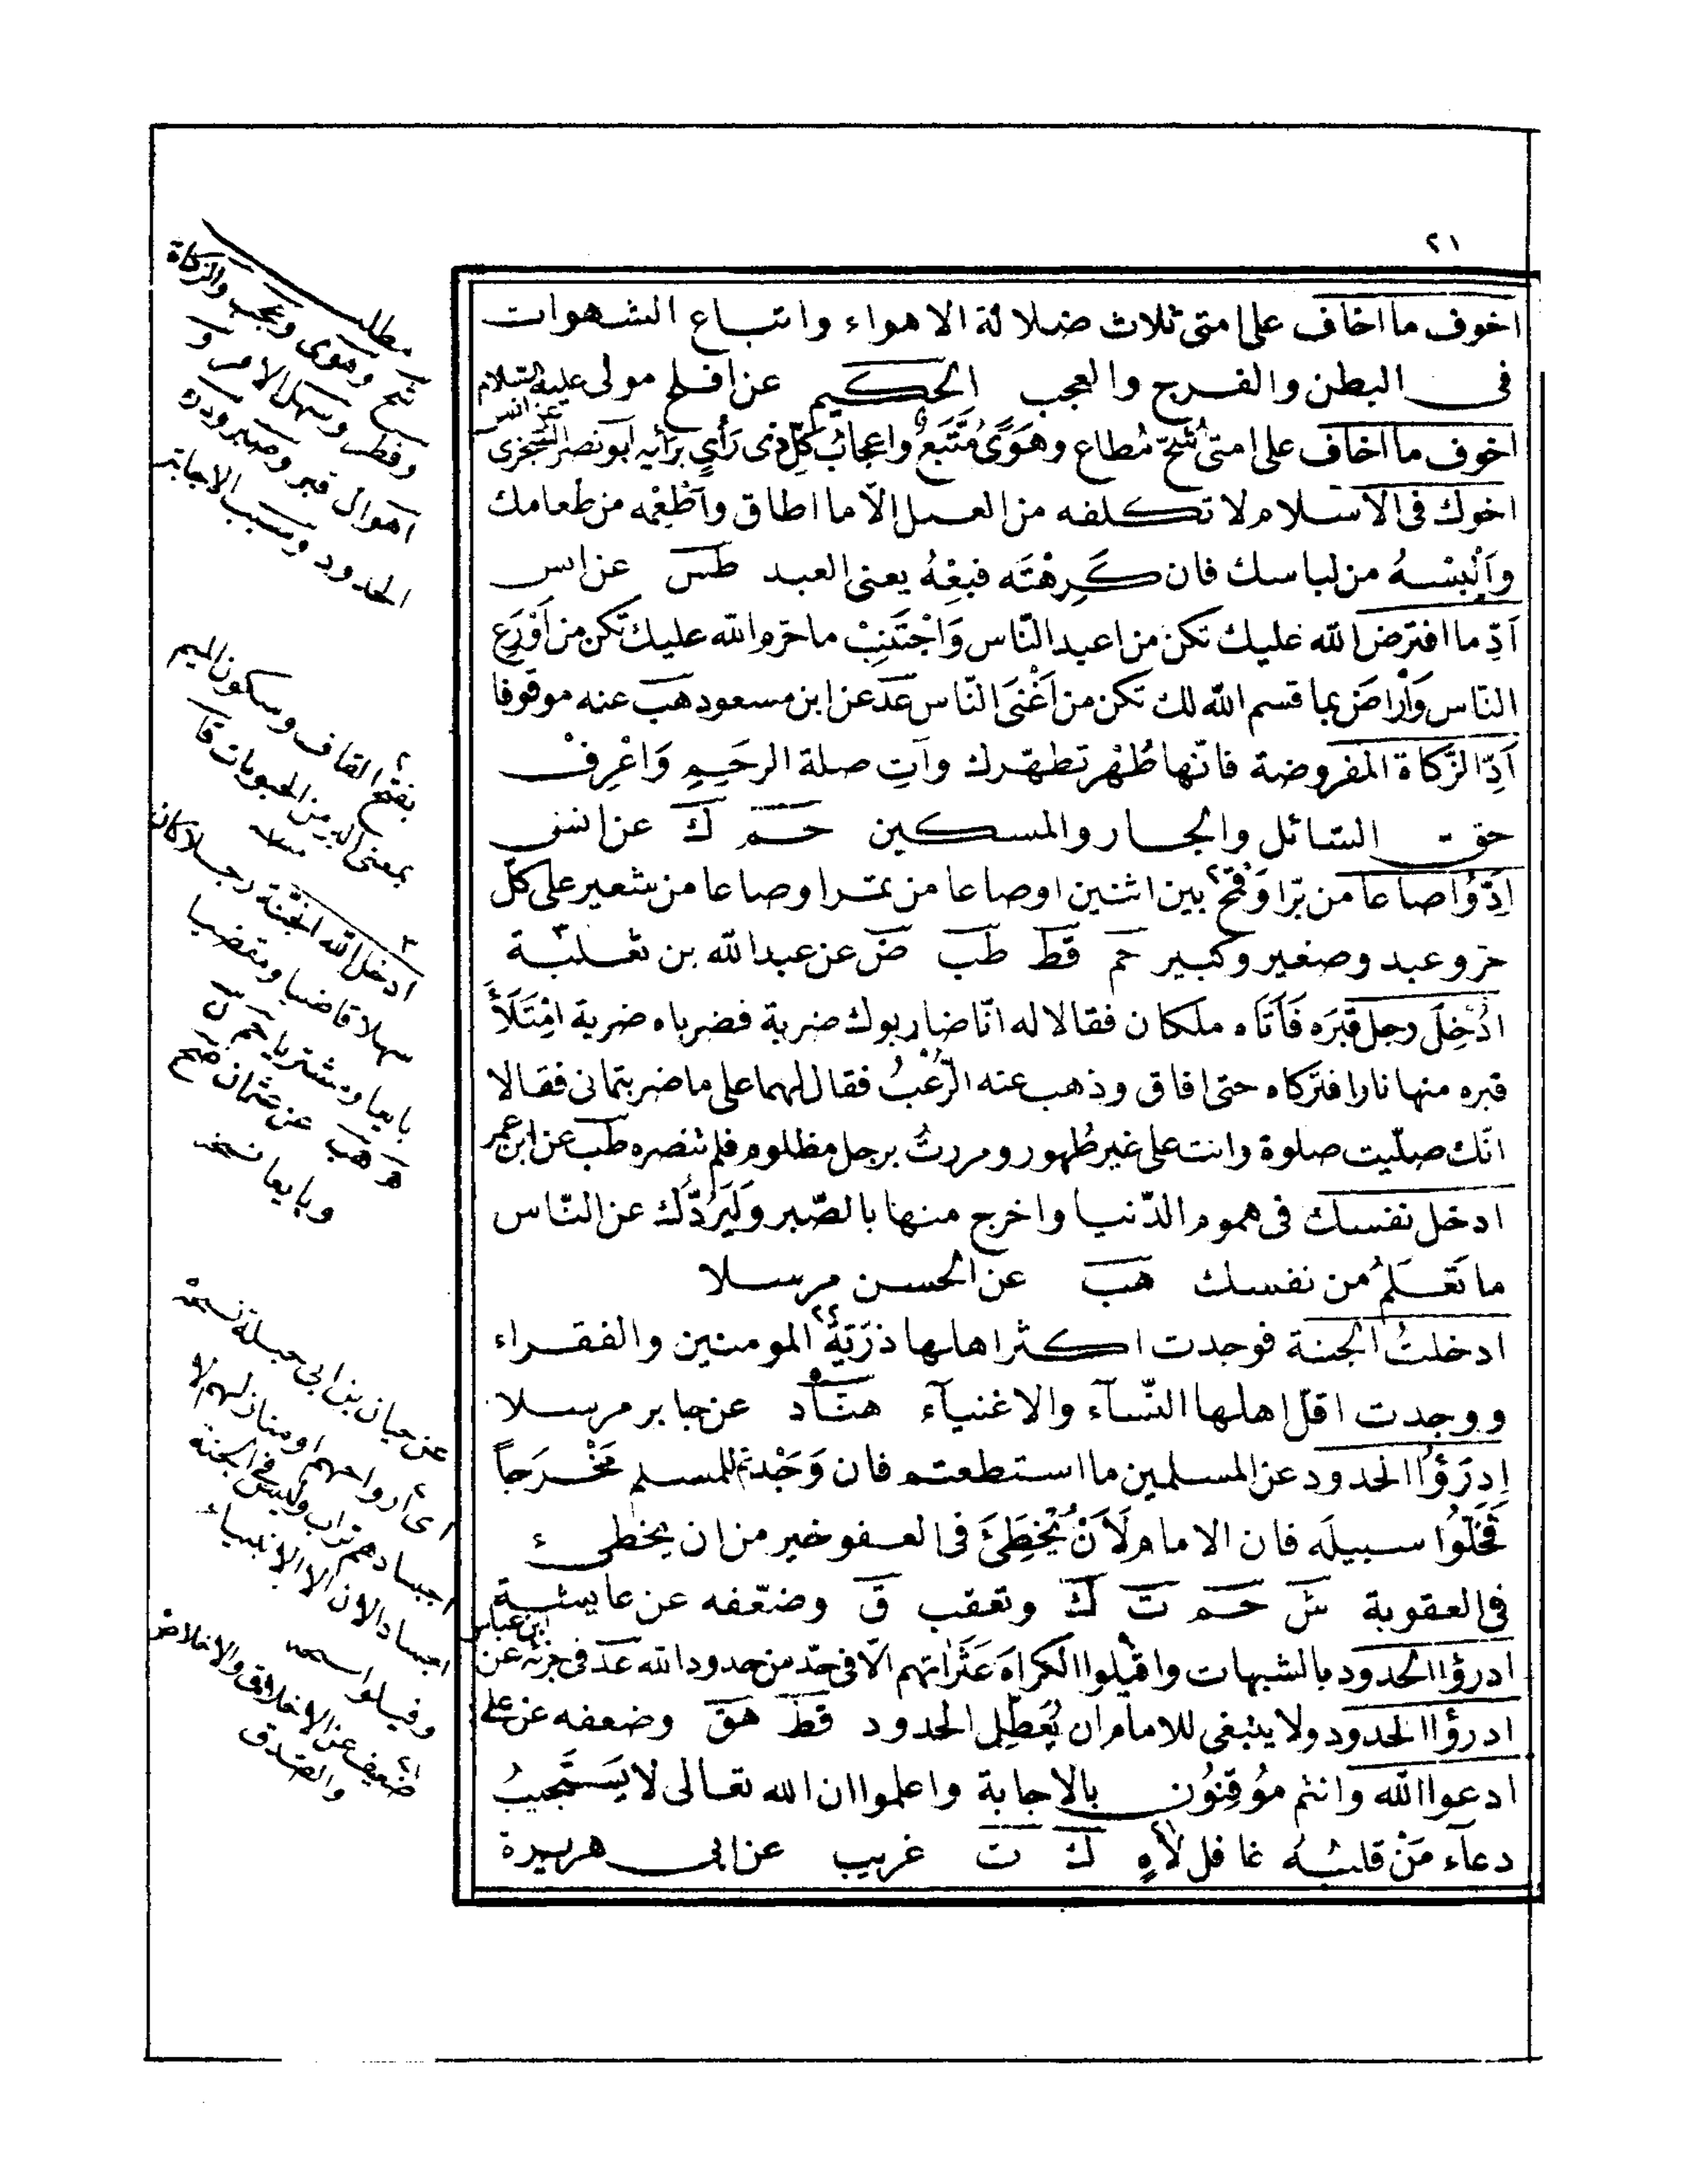 ٢١
اخوف ما اخاف على امتى ثلاث ضلالة الاهواء واتباع الشهوات
فى البطن والفرج والعجب الحكيم عن افلح مولى عليه السلام
اخوف ما اخاف على امتى شُحّ مُطاع وهَوًى مُتَّبَع واعجابُ كلِّ ذى رَأىٍ برَأيِه ابو نصر السجزى عن انس
اخوك فى الاسلام لا تكلفه من العمل الّا ما اطاق وَاَطْعِمْه من طعامك
وَاَلْبِسْهُ من لباسك فان كَرِهْتَه فبِعْهُ يعنى العبد طس عن انس
اَدِّ ما افترض الله عليك تكن من اعبد النّاس وَاجْتَنِبْ ما حرّم الله عليك تكن من اَوْرَعِ
النّاس وَارْضَ بما قسم الله لك تكن من اَغْنَى النّاس عد عن ابن مسعود هب عنه موقوفا
اَدِّ الزَّكاة المفروضة فانّها طُهْر تطهّرك وآتِ صلة الرحَمِ وَاعْرِفْ
حق السّائل والجار والمسكين حم ك عن انس
اَدُّؤا صاعا من برّ او قمح بين اثنين او صاعا من تمر او صاعا من شعير على كلّ
حر وعبد وصغير وكبير حم قط طب ض عن عبد الله بن ثعلبة
اُدْخِلَ رجل قَبَره فَاَتَاه ملكان فقالا له انّا ضاربوك ضربة فضرباه ضربة اِمْتَلَأَ
قبره منها نارا فتركاه حتى افاق وذهب عنه الرُّعْبُ فقال لهما على ما ضربتمانى فقالا
انّك صلّيت صلوة وانت على غير طُهور ومررتُ برجل مظلوم فلم تنصره طب عن ابن عمر
ادخل نفسك فى هموم الدّنيا واخرج منها بالصّبر وَلْيَرُدَّك عن النّاس
ما تَعْلَمُ من نفسك هب عن الحسن مرسلا
ادخلتُ الجنة فوجدت اكثر اهلها ذرّيّةُ المومنين والفقراء
ووجدت اقلّ اهلها النّسآء والاغنيآء هنّاد عن جابر مرسلا
اِدرَؤُا الحدود عن المسلمين ما استطعتم فان وَجَدتم للمسلم مَخْرَجاً
فَخَلُّوا سبيلَه فان الامام لَاَنْ يُخْطِئَ فى العفو خير من ان يخطىء
فى العقوبة ش حم ت ك وتعقب ق وضعّفه عن عايشة
ادرؤا الحدود بالشبهات واقيلوا الكرام عَثَراتهم الّا فى حدّ من حدود الله عد فى جزئه عن ابن عباس
ادرؤا الحدود ولا ينبغى للامام ان يُعطِّل الحدود قط هق وضعفه عن على
ادعوا الله وانتم مُوْقِنُون بالاجابة واعلموا ان الله تعالى لا يَستَجيبُ
دعآء مَنْ قلبُه غافل لَاهٍ ك ت غريب عن ابى هريرة
مطلب
شح وهوى وعجب والزكاة
وفطر وسهل الامر و
اهوال قبر وصبر ودرء
الحدود وسبب الاجابة
٢ بفتح القاف وسكون الميم
بمعنى البر من الحبوبات
٣ ادخل الله الجنّة رجلا كان
سهلا قاضيا ومقضيا
بايعا ومشتريا حم ن
ه هب عن عثمان صح
وبايعا نسخه
عن حبان بن ابى جبلة نسخه
٤ اى ارواحهم او منازلهم لا
اجسادهم تراب وليس فى الجنة
اجساد الان الا الانبياء
ضعيف عن الاخلاق والاخلاص
والصدق